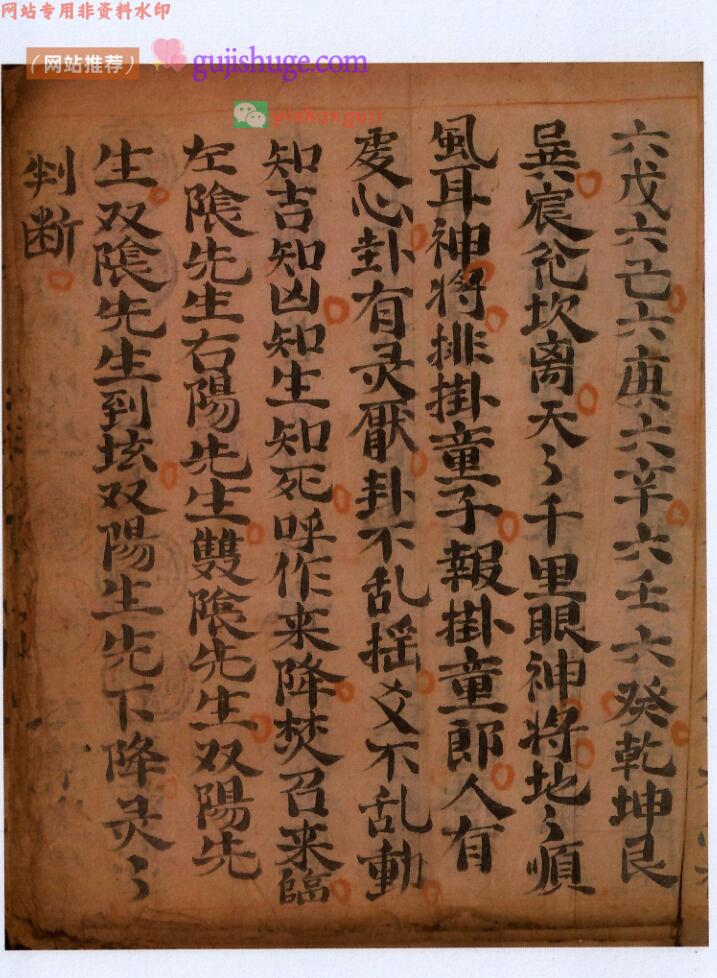 网站专用非资料水印
（网站推荐）
gujishuge.com
六戊六己六庚六辛六壬六癸乾坤艮
巽宸兊坎离天々千里眼神将地々順
風耳神将排掛童子報掛童郎人有
虔心卦有灵厭卦不乱摇爻不乱動
知吉知凶知生知死呼作来降焚召来臨
左陰先生右陽先生雙陰先生双陽先
生双陰先生到坛双陽生先下降灵々
判断